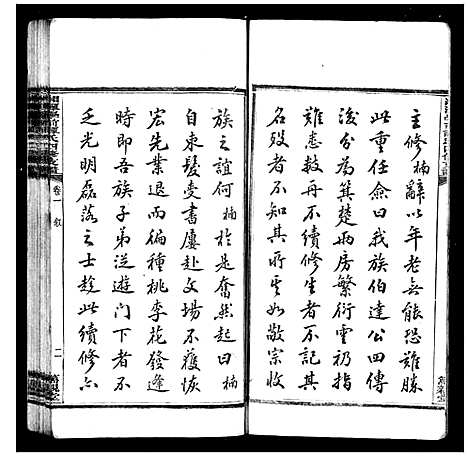 主修楠辭以年老無能恐難勝
此重任僉曰我族伯達公四傳
後分為冀楚兩房繁衍雲礽指
難悉數再不續修生者不記其
名殁者不知其所其如敬宗收
族之誼何楠於是奮然起曰楠
自束髮受書屢赴文場不獲恢
宏先業退而徧種桃李花發逢
時即吾族子弟從遊門下者不
乏光明磊落之士趁此續修亦
卷一 叙
二